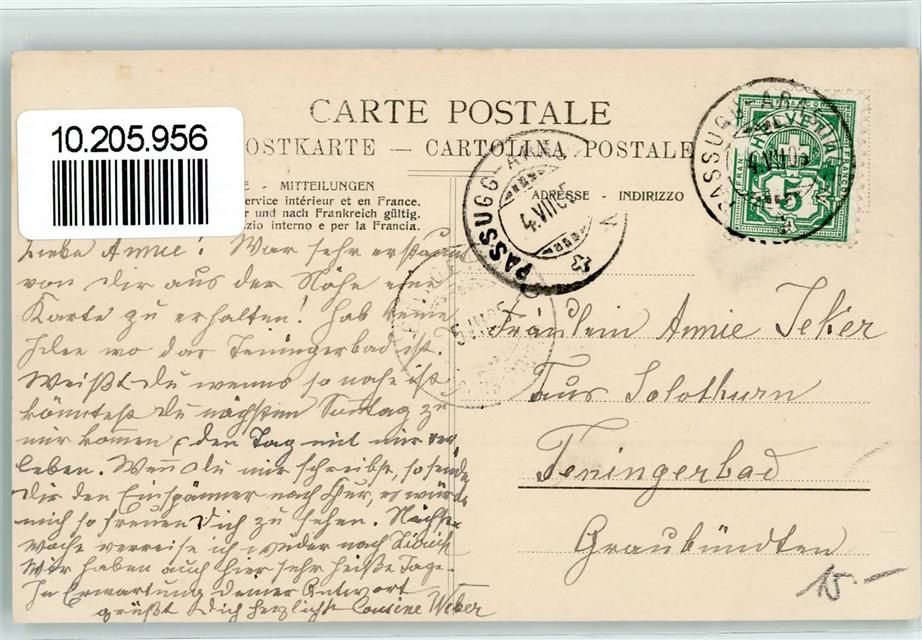 10.205.956
CARTE POSTALE
OSTKARTE — CARTOLINA POSTALE
E - MITTEILUNGEN
ervice intérieur et en France.
r und nach Frankreich gültig.
zio interno e per la Francia.
ADRESSE - INDIRIZZO
PASSUGG-ARA
4.VII.05
HELVETIA
FRANCO
5
PASSUGG-ARA
4.VII.05
5.VII.05
Liebe Annie! War sehr erstaunt
von dir aus der Nähe eine
Karte zu erhalten! Hab keine
Idee wo das Teningerbad ist.
Weißt du wenns so nahe ist
könntest Du nächsten Sontag zu
mir kommen & den Tag mit mir ver
leben. Wenn Du mir schreibst, so sende
dir den Einspänner nach Chur, es würde
mich so freuen Dich zu sehen. Nächste
Woche verreise ich wieder nach Zürich
Wir haben auch hier sehr heiße Tage.
In Erwartung deiner Antwort
grüßt Dich herzlich Cousine Weber
Fräulein Annie Jeker
aus Solothurn
Teningerbad
Graubündten
15.-